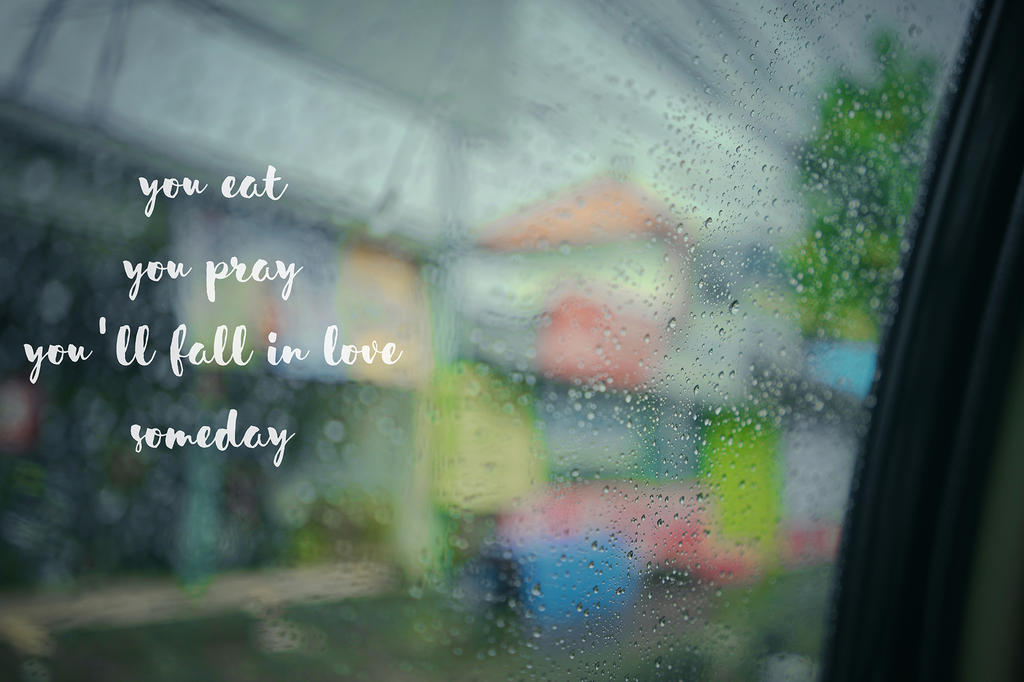 you eat
you pray
you'll fall in love
someday